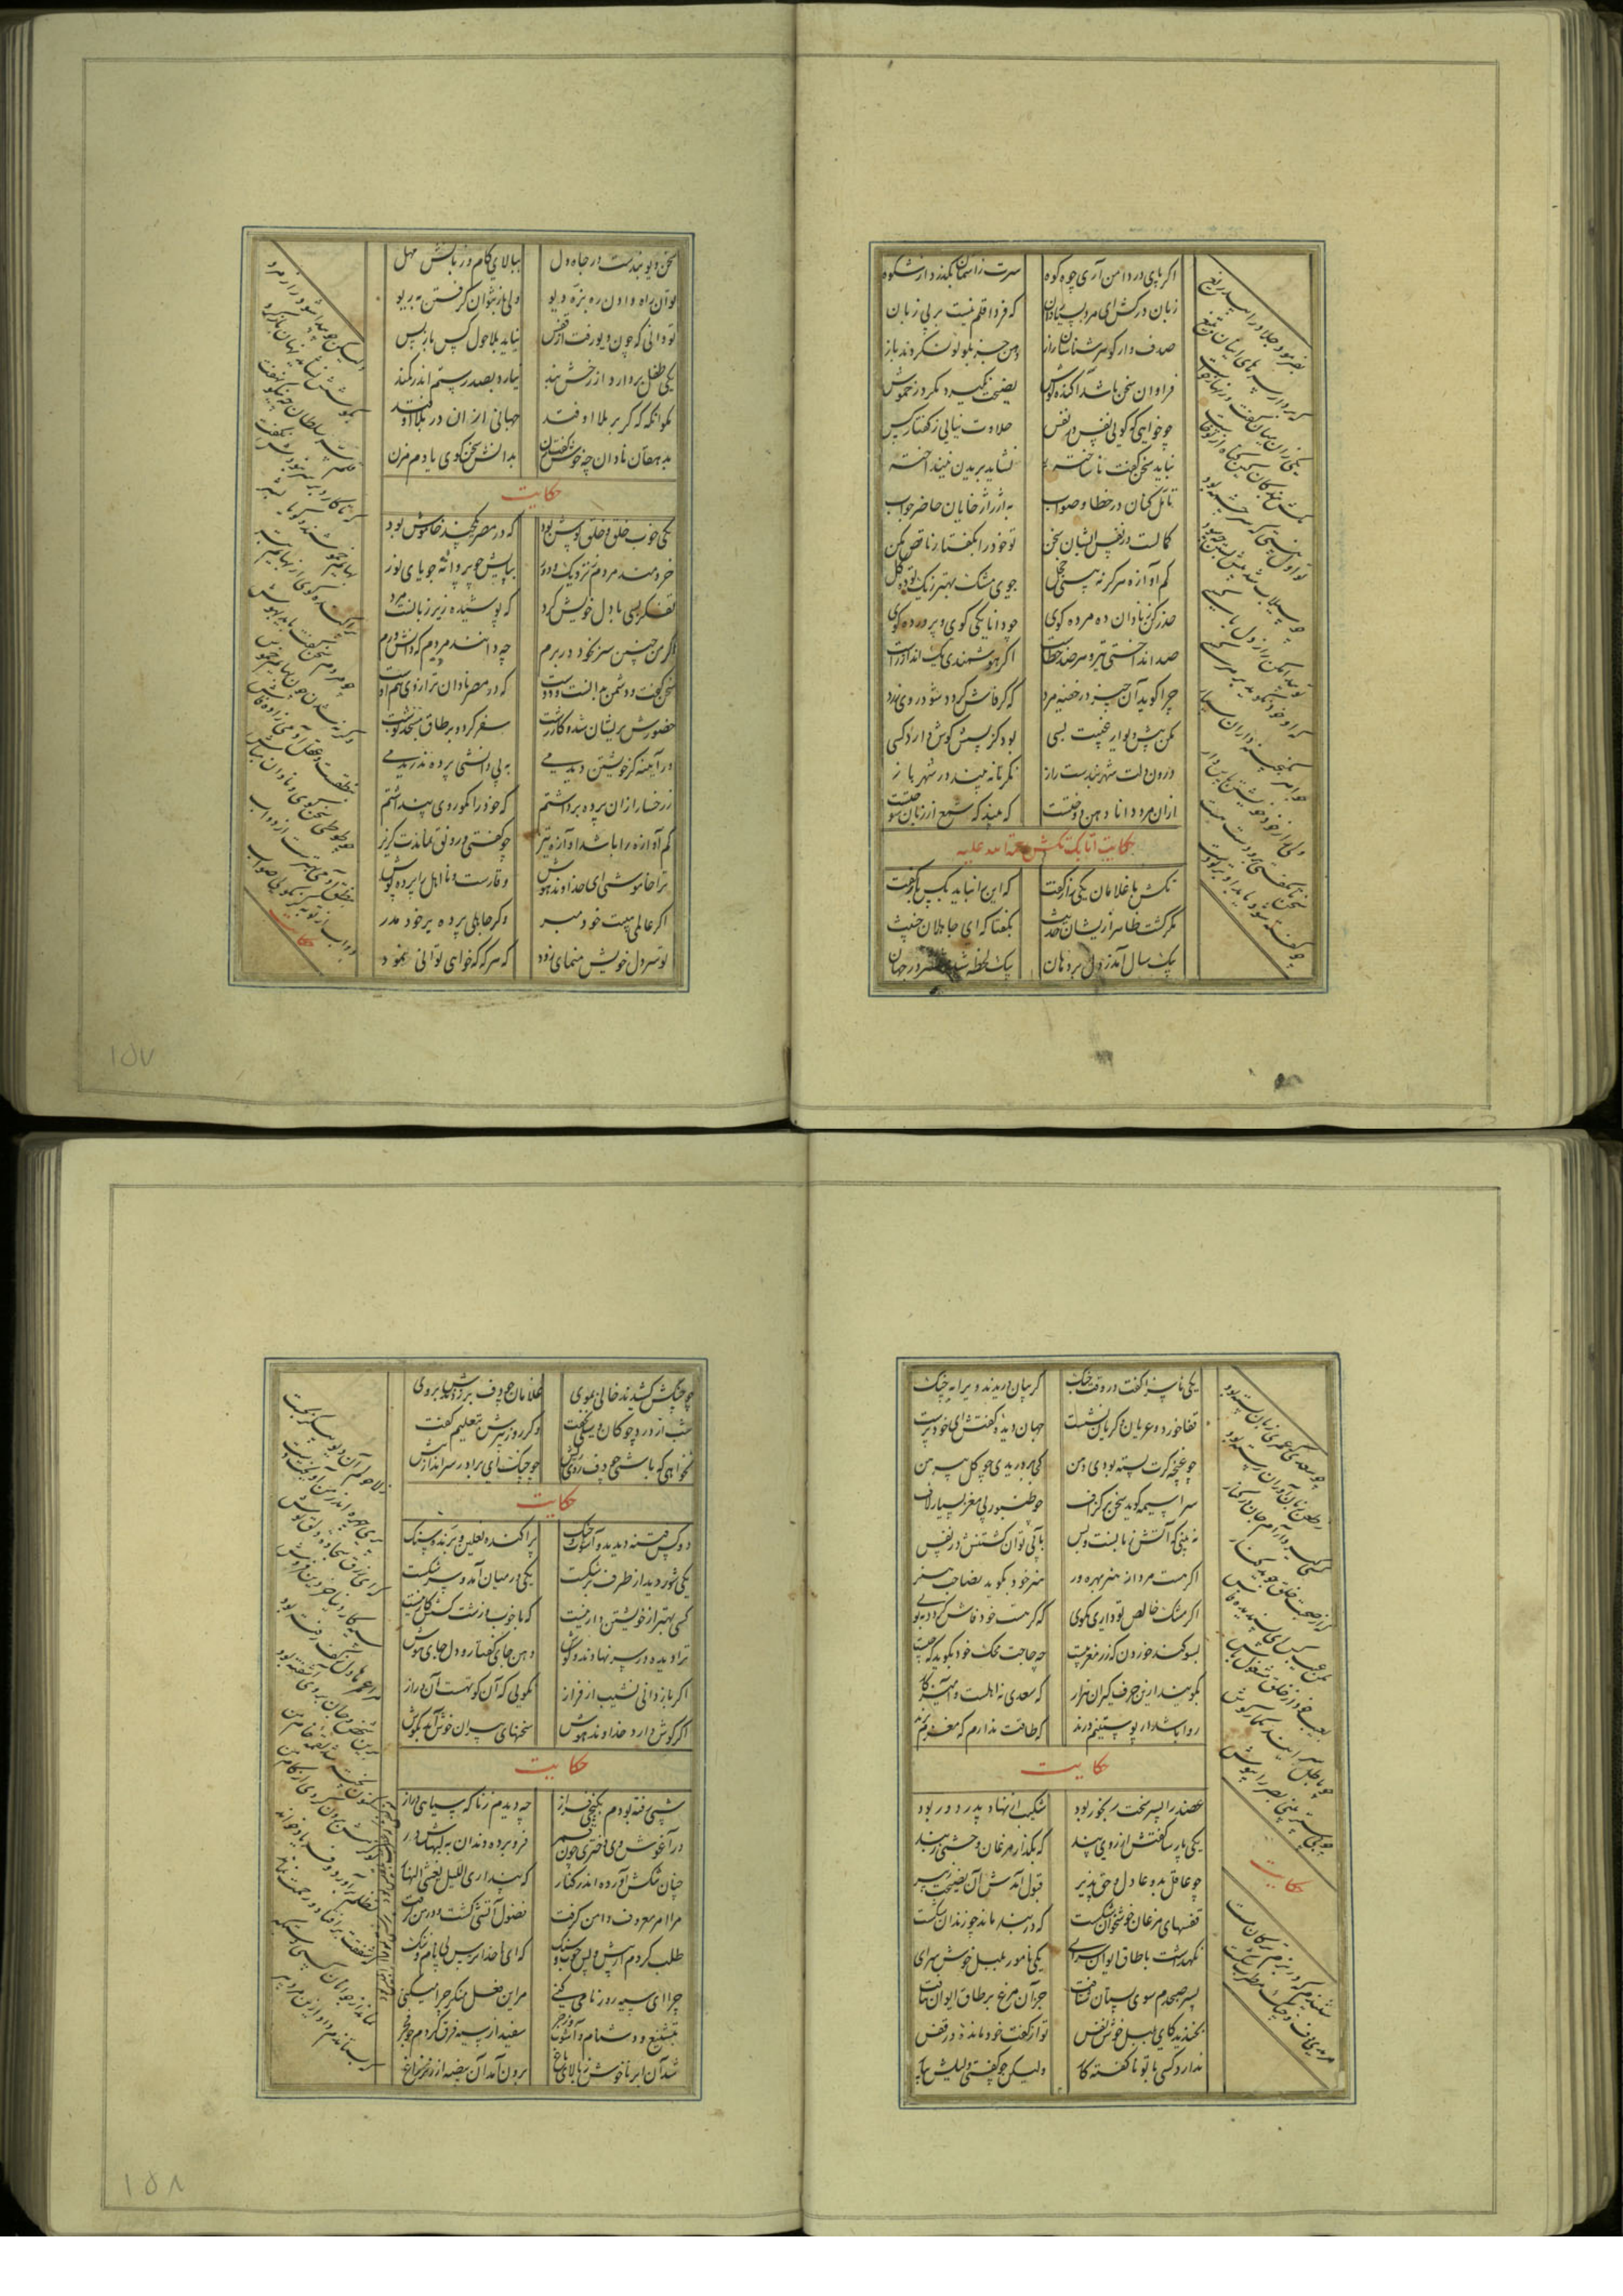 اگر پای در دامن آری چو کوه سرت زاسمان بگذرد از شکوه
زبان درکش ای مرد بسیاردان که فردا قلم نیست بر بی زبان
صدف وار گوهرشناسان راز دهن جز بلولو نکردند باز
فراوان سخن باشد آکنده گوش نصیحت نگیرد مگر در خموش
چو خواهی که گویی نفس بر نفس حلاوت نیابی ز گفتار کس
نباید سخن گفت ناساخته نشاید بریدن نینداخته
تامل کنان در خطا و صواب به از ژاژخایان حاضر جواب
کمالست در نفس انسان سخن تو خود را بگفتار ناقص مکن
کم آواز هرگز نه بینی خجل جوی مشک بهتر که یک توده گل
حذر کن ز نادان ده مرده گوی چو دانا یکی گوی و پرورده گوی
صد انداختی تیر و هر صد خطاست اگر هوشمندی یک انداز و راست
چرا گوید آن چیز در خفیه مرد که گر فاش گردد شود روی زرد
مکن پیش دیوار غیبت بسی بود کز پسش گوش دارد کسی
درون دلت شهربندست راز نگر تا نه بیند در شهر باز
ازان مرد دانا دهن دوختست که بیند که شمع از زبان سوختست
حکایت اتابک تکش رحمة الله علیه
تکش با غلامان یکی راز گفت که این را نباید بکس باز گفت
بگفتا که ای جاهلان خبیث
یک سال آمد ز دل بر دهان بیک لحظه شد منتشر در جهان
بفرمود جلاد را بیدریغ
که بردار سرهای اینان بتیغ
یکی زان میان گفت و زنهار خواست
مکش بندگان کین گناه از تو خاست
تو اول نبستی که سرچشمه بود
چو سیلاب شد پیش بستن چه سود
تو پیدا مکن راز دل با کسی
که او خود بگوید بر هر کسی
جواهر بگنجینه داران سپار
ولی راز خود خویشتن پاس دار
سخن تا نگفتی برو دست هست
چو گفته شود یابد او بر تو دست
سخن دیو بندست در چاه دل ببالای کام و زبانش مهل
توان راه دادن ره نره دیو ولی باز نتوان گرفتن به ریو
تو دانی که چون دیو رفت از قفس نیاید بلاحول کس باز پس
یکی طفل بردارد از رخش بند نیارد بصد رستم اندر کمند
مگو آنکه که گر بر ملا اوفتد جهانی ازان در بلا اوفتد
بدهقان نادان چه خوش گفت زن بدانش سخن گوی یا دم مزن
حکایت
یکی خوب خلق و خلق پوش بود که در مصر یکچند خاموش بود
خردمند مردم ز نزدیک و دور بپایش چو پروانه جویای نور
تفکر شبی با دل خویش کرد که پوشیده زیر زبانست مرد
اگر من چنین سر بخود در برم چه دانند مردم که دانشورم
سخن گفت و دشمن بدانست و دوست که در مصر نادان تر از وی هم اوست
حضورش پریشان شد و کار زشت سفر کرد و بر طاق مسجد نوشت
در آیینه گر خویشتن دیدمی به بی دانشی پرده ندریدمی
زرخسار ازان پرده برداشتم که خود را نکو روی پنداشتم
کم آواز را باشد آوازه تیز چو گفتی و رونق نماندت گریز
ترا خاموشی ای خداوند هوش وقارست و نااهل را پرده پوش
اگر عالمی هیبت خود مبر وگر جاهلی پرده بر خود مدر
تو سر دل خویش منمای زود که هرگه که خواهی توانی نمود
ولیکن چو پیدا شود راز مرد
بکوشش نشاید نهان باز کرد
قلم سر سلطان چه نیکو نهفت
که تا کارد بر سر نبودش نگفت
بهایم خموشند و گویا بشر
پراکنده گوی از بهایم بتر
چو مردم سخن گفت باید بهوش
وگرنه شدن چون بهایم خموش
بنطقست و عقل آدمی زاده فاش
چو طوطی سخن گوی و نادان مباش
بنطق آدمی بهترست از دواب
دواب از تو به گر نگویی صواب
حکایت
۱۵۷
یکی ناسزا گفت در وقت جنگ گریبان دریدند ویرا به چنگ
قفا خورده عریان و گریان نشست جهان دیده گفتش ای خودپرست
چو غنچه گرت بسته بودی دهن کی بدریدی چو گل پیرهن
سراسیمه گوید سخن بر گزاف چو طنبور بی مغز بسیار لاف
نه بینی که آتش زبانست و بس بآبی توان کشتنش در نفس
اگر هست مرد از هنر بهره ور هنر خود بگوید نه صاحب هنر
اگر مشک خالص تو داری مگوی که گر هست خود فاش گردد ببوی
بسوگند خوردن که زر مغربیست چه حاجت محک خود بگوید که چیست
بگویند ازین حرف گیران هزار که سعدی نه اهلست و آمیزگار
روا باشد ار پوستینم درند که طاقت ندارم که مغزم برند
حکایت
عضد را پسر سخت رنجور بود شکیب از نهاد پدر دور بود
یکی پارسا گفتش از روی پند که بگذار مرغان وحشی ز بند
قفسهای مرغان خوشخوان شکست که در بند ماند چو زندان شکست
نگهداشت بر طاق ایوان سرای یکی نامور بلبل خوش سرای
پسر صبحدم سوی بستان شتافت جز آن مرغ بر طاق ایوان نیافت
بخندید کای بلبل خوش نفس تو از گفت خود مانده در قفس
ندارد کسی با تو ناگفته کار ولیکن چو گفتی دلیلش بیار
چو سعدی که چندی زبان بسته بود
ز طعن زبان آوران رسته بود
کسی گیرد آرام جان در کنار
که از صحبت خلق جوید کنار
مکن عیب کس ای پسندیده فاش
بعیب خود از خلق مشغول باش
چو باطل سرایند مگمار گوش
چو بی ستر بینی بصر را بپوش
حکایت
شنیدم که در بزم ترکان مست
مریدی دف و چنگ مطرب شکست
چو چنگش کشیدند حالی بموی غلامان چو دف بر زدندش بروی
شب از درد چوگان و سیلی نخفت دگر روز پیرش بتعلیم گفت
نخواهی که باشی چو دف روی ریش چو چنگ ای برادر سر انداز پیش
حکایت
دو کس فتنه دیدند و آشوب و جنگ پراکنده نعلین و پرنده سنگ
یکی فتنه دید از طرف بر شکست یکی در میان آمد و سر شکست
کسی بهتر از خویشتن دار نیست که با خوب و زشت کسش کار نیست
ترا دیده در سر نهادند و گوش دهن جای گفتار و دل جای هوش
مگر باز دانی نشیب از فراز نگویی که آن کوتهست آن دراز
اگر گوش دارد خداوند هوش سخنهای پیران خوش آید بگوش
حکایت
شبی رفته بودم بکنجی فراز چه دیدم زناگه سیاهی دراز
در آغوش وی دختری چون قمر فرو برده دندان به لبهاش در
چنان تنگش آورده اندر کنار که پنداری اللیل یغشی النهار
مرا امر معروف دامن گرفت فضول آتشی گشت و در من گرفت
طلب کردم از پیش و پس چوب و سنگ که ای ناخدا ترس بی نام و ننگ
بتشنیع و دشنام و آشوب و زجر سفید از سیه فرق کردم چو فجر
شد آن ابر ناخوش ز بالای باغ برون آمد آن بیضه از زیر زاغ
ز لاحولم آن دیو پیکر بجست
پری پیکر اندر من آویخت دست
که ای زرق سجاده دلق پوش
سیه کار دنیا خر دین فروش
مرا عمرها دل ز کف رفته بود
برین شخص و جان بر وی آشفته بود
کنون پخته شد لقمه خام من
که گرمش برون کردی از کام من
تظلم برآورد و فریاد خواند
که شفقت برافتاد و رحمت نماند
نماند از جوانان کسی دستگیر
که بستاندم داد ازین مرد پیر
۱۵۸